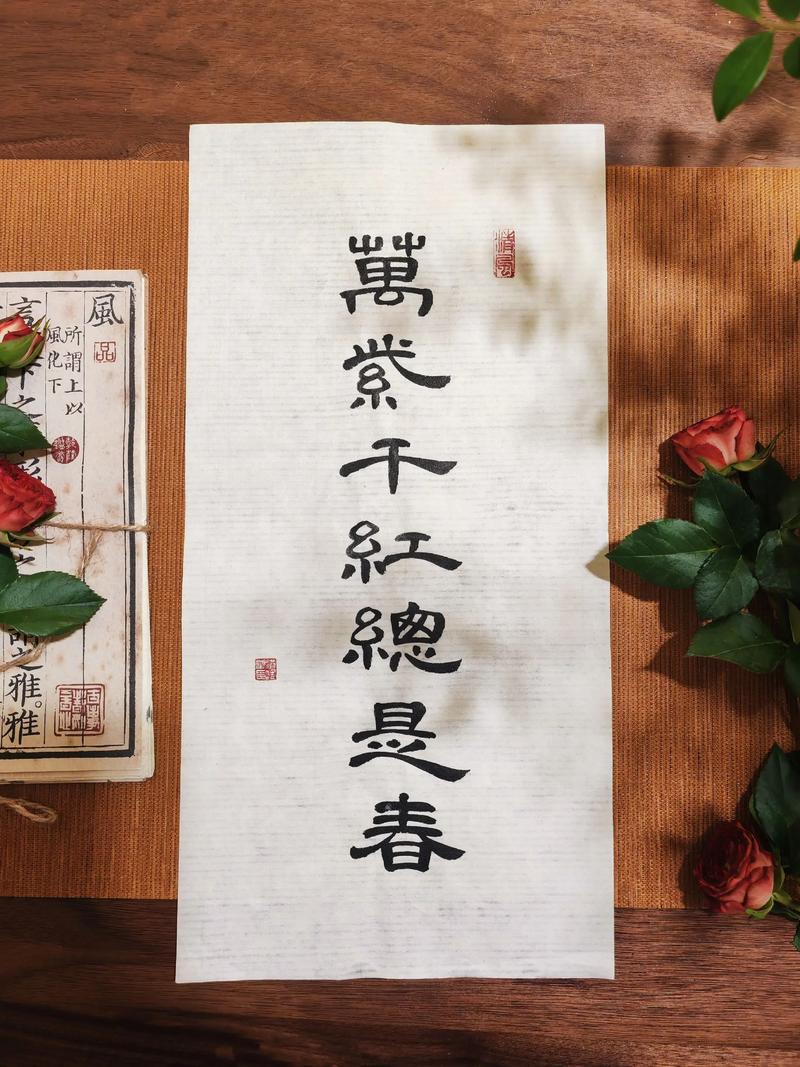 萬紫千紅總是春
清風
風
品
所謂上以
風化下
之雅。雅